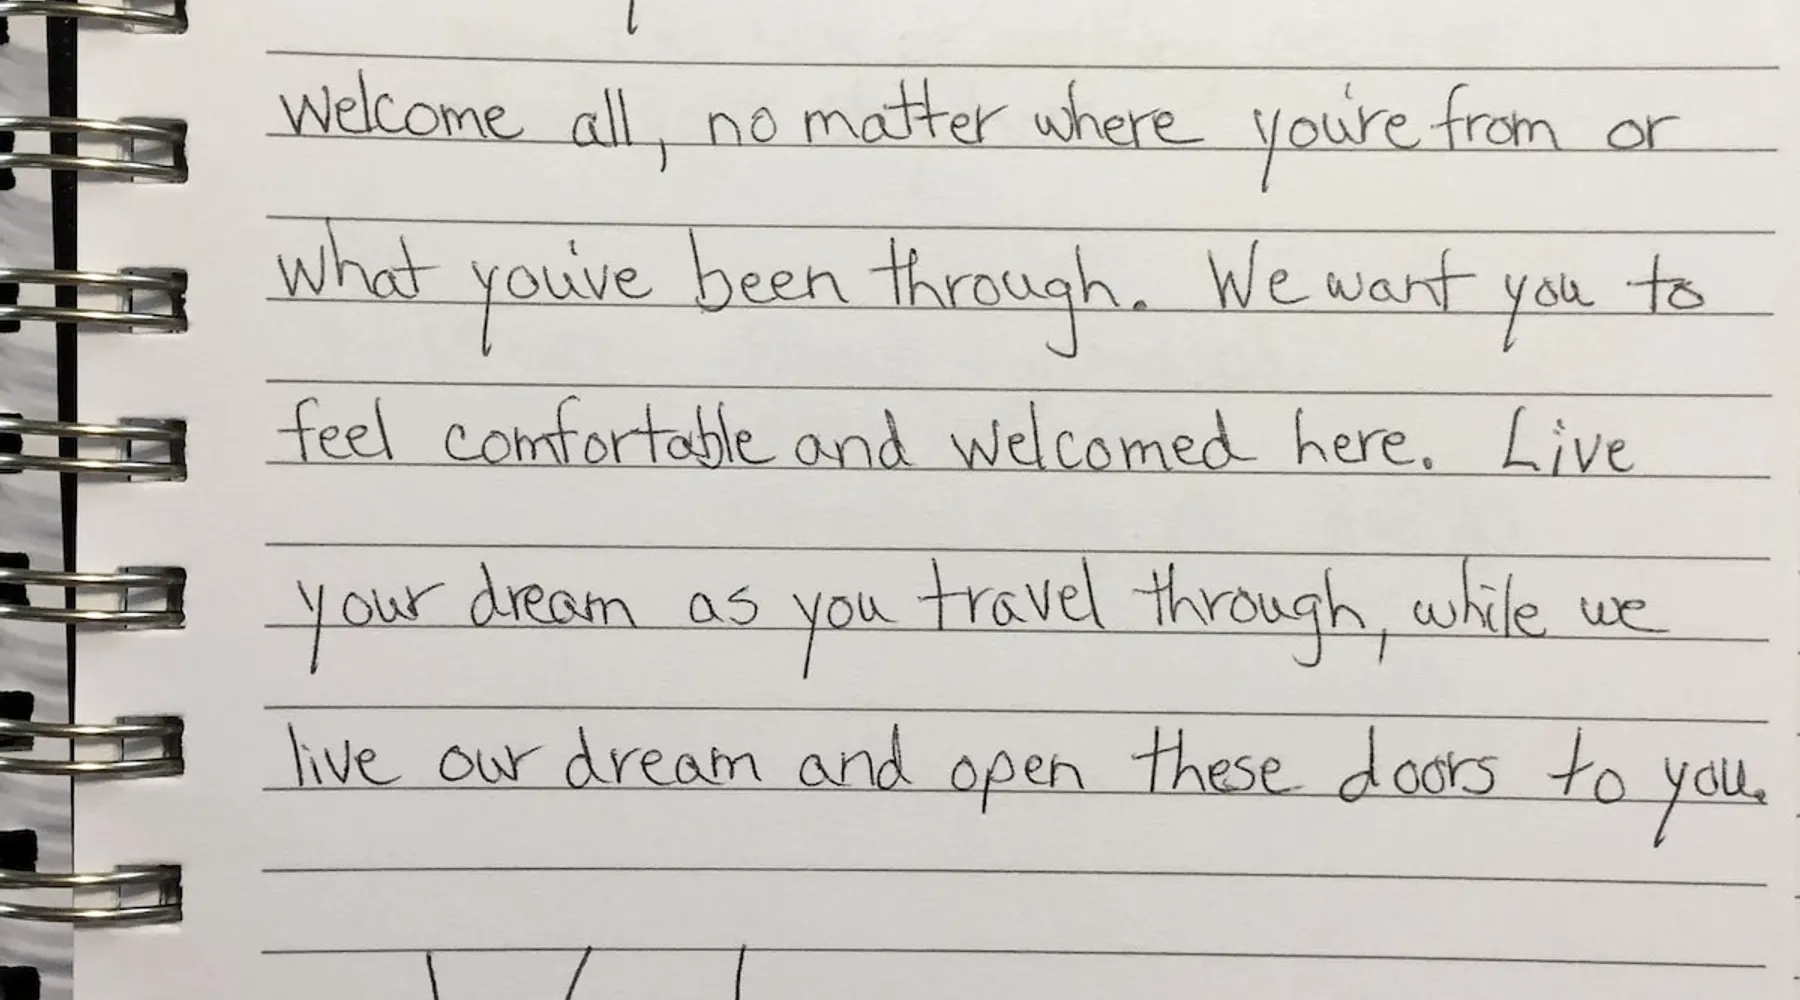 Welcome all, no matter where you're from or
what you've been through. We want you to
feel comfortable and welcomed here. Live
your dream as you travel through, while we
live our dream and open these doors to you.